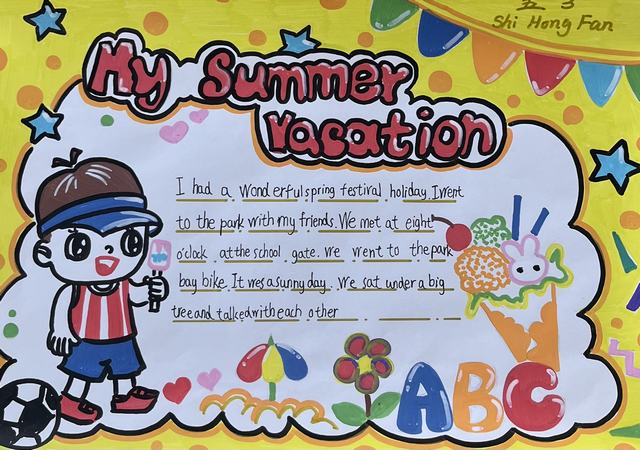 Shi Hong Fan
My Summer
vacation
I had a wonderful spring festival holiday. I went
to the park with my friends. We met at eight
o'clock at the school gate. We went to the park
bay bike. It was a sunny day. We sat under a big
tree and talked with each other
ABC